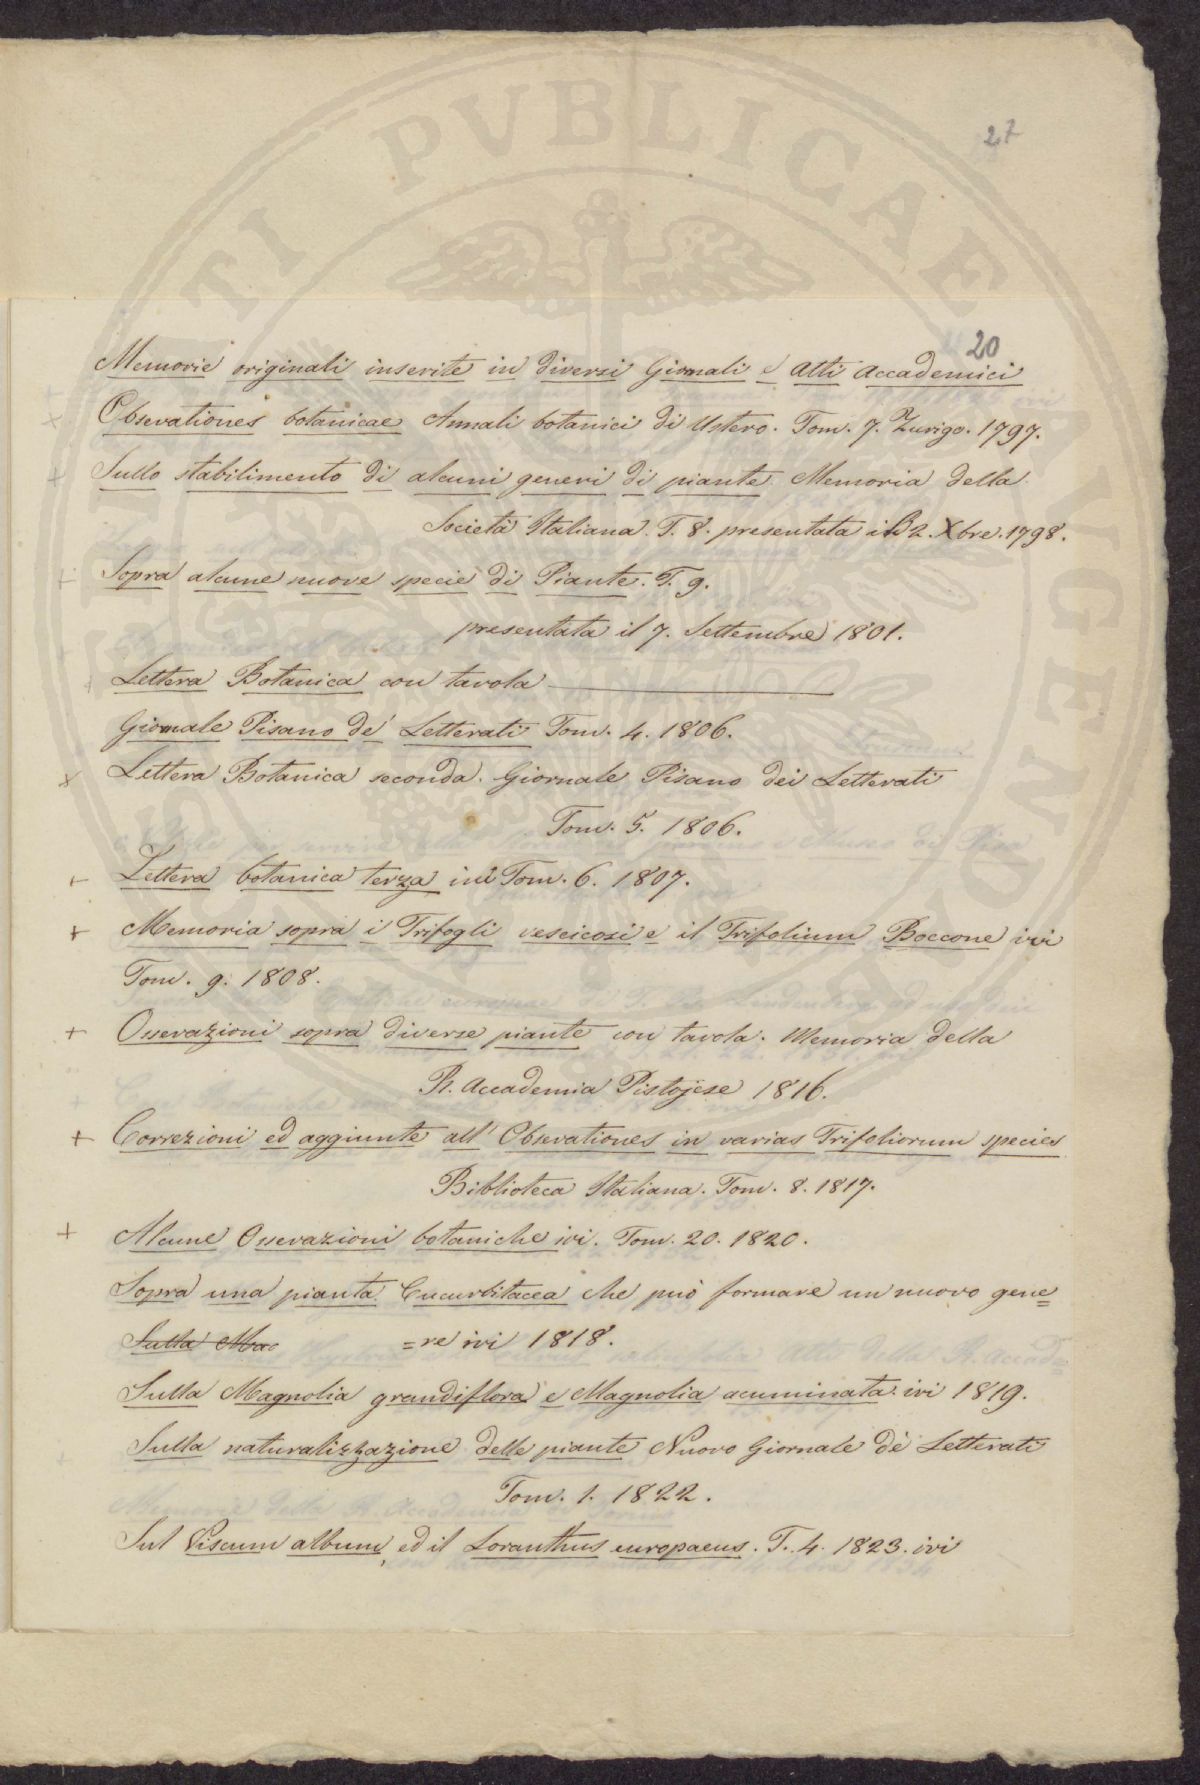 27
20
Memorie originali inserite in diversi Giornali e Atti Accademici
Observationes botanicae Annali botanici di Ustero. Tom. 7. Zurigo. 1797.
Sullo stabilimento di alcuni generi di piante. Memoria della
Società Italiana. T. 8. presentata il 2. Xbre. 1798.
Sopra alcune nuove specie di Piante. T. 9.
presentata il 7. Settembre 1801.
Lettera Botanica con tavola
Giornale Pisano de' Letterati Tom. 4. 1806.
Lettera Botanica seconda. Giornale Pisano dei Letterati
Tom. 5. 1806.
Lettera botanica terza ivi Tom. 6. 1807.
Memoria sopra i Trifogli vescicosi e il Trifolium Boccone ivi
Tom. 9. 1808.
Osservazioni sopra diverse piante con tavola. Memoria della
R. Accademia Pistojese 1816.
Correzioni ed aggiunte all' Observationes in varias Trifoliorum species
Biblioteca Italiana. Tom. 8. 1817.
Alcune Osservazioni botaniche ivi. Tom. 20. 1820.
Sopra una pianta Cucurbitacea che può formare un nuovo gene=
Sulla Ma =re ivi 1818.
Sulla Magnolia grandiflora e Magnolia acuminata ivi 1819.
Sulla naturalizzazione delle piante Nuovo Giornale de' Letterati
Tom. 1. 1822.
Sul Viscum album, ed il Loranthus europaeus. T. 4. 1823. ivi